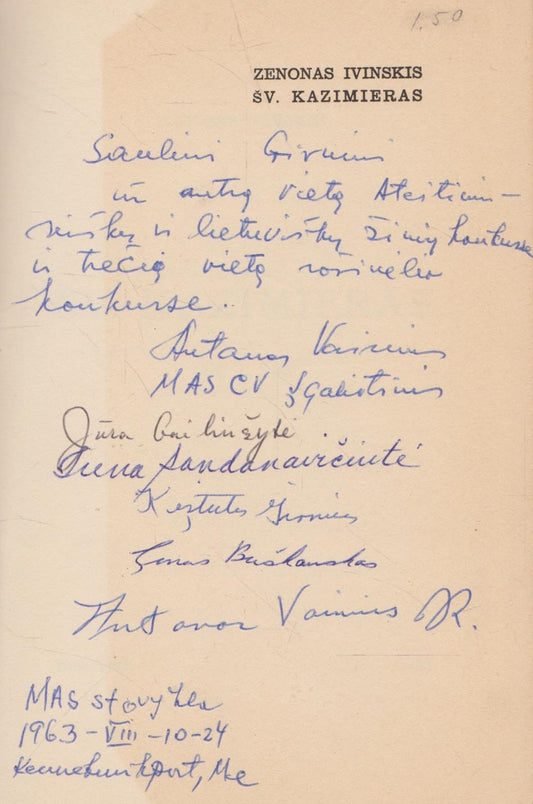 1.50
ZENONAS IVINSKIS
ŠV. KAZIMIERAS
Sauliui Girniui
už antrą vietą Ateitinin-
kiškų ir lietuviškų žinių konkurse
ir trečią vietą rašinėlio
konkurse.
Antanas Vainius
MAS CV Įgaliotinis
Jūra Gailiušytė
Sandanavičiutė
Kęstutis Girnius
Antanas Vainius JR.
MAS stovykla
1963-VIII-10-24
Kennebunkport, Me